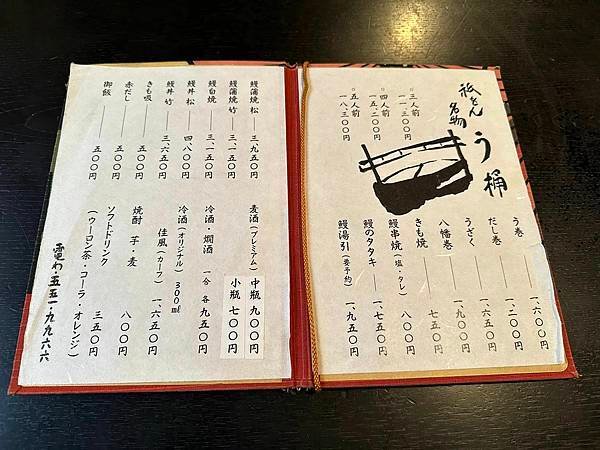 祇をん
名物
う桶
三人前 一一、三〇〇円
四人前 一五、二〇〇円
五人前 一八、三〇〇円
う巻 一、六〇〇円
だし巻 一、二〇〇円
うざく 一、九〇〇円
八幡巻 一、五〇〇円
きも焼 七五〇円
鰻串焼(塩・タレ) 八〇〇円
鰻のタタキ 一、七五〇円
鰻湯引(要予約) 一、九五〇円
鰻蒲焼 松 三、九五〇円
鰻蒲焼 竹 三、一五〇円
鰻白焼 三、一五〇円
鰻丼 松 四、八〇〇円
鰻丼 竹 三、六五〇円
きも吸 五〇〇円
赤だし 五〇〇円
御飯 五〇〇円
麦酒(プレミアム) 中瓶 九〇〇円
小瓶 七〇〇円
冷酒・燗酒 一合 各九五〇円
冷酒(オリジナル) 300㎖
佳風(カーフ) 一、六五〇円
焼酎 芋・麦 八〇〇円
ソフトドリンク 三五〇円
(ウーロン茶・コーラ・オレンジ)
電わ・五五一・九九六六